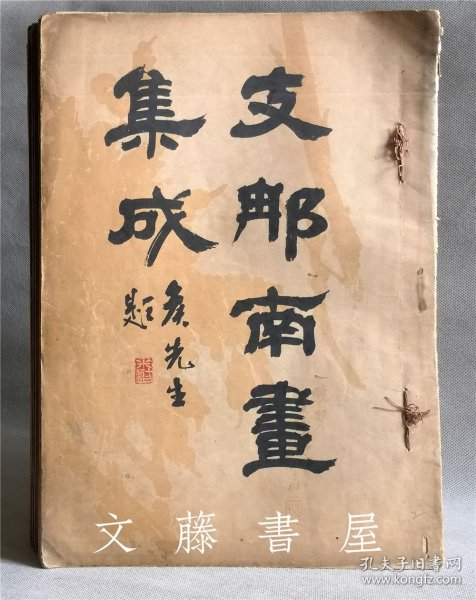 支那南畫
集成
先生
題
文藤書屋
孔夫子旧书网
www.kongfz.com